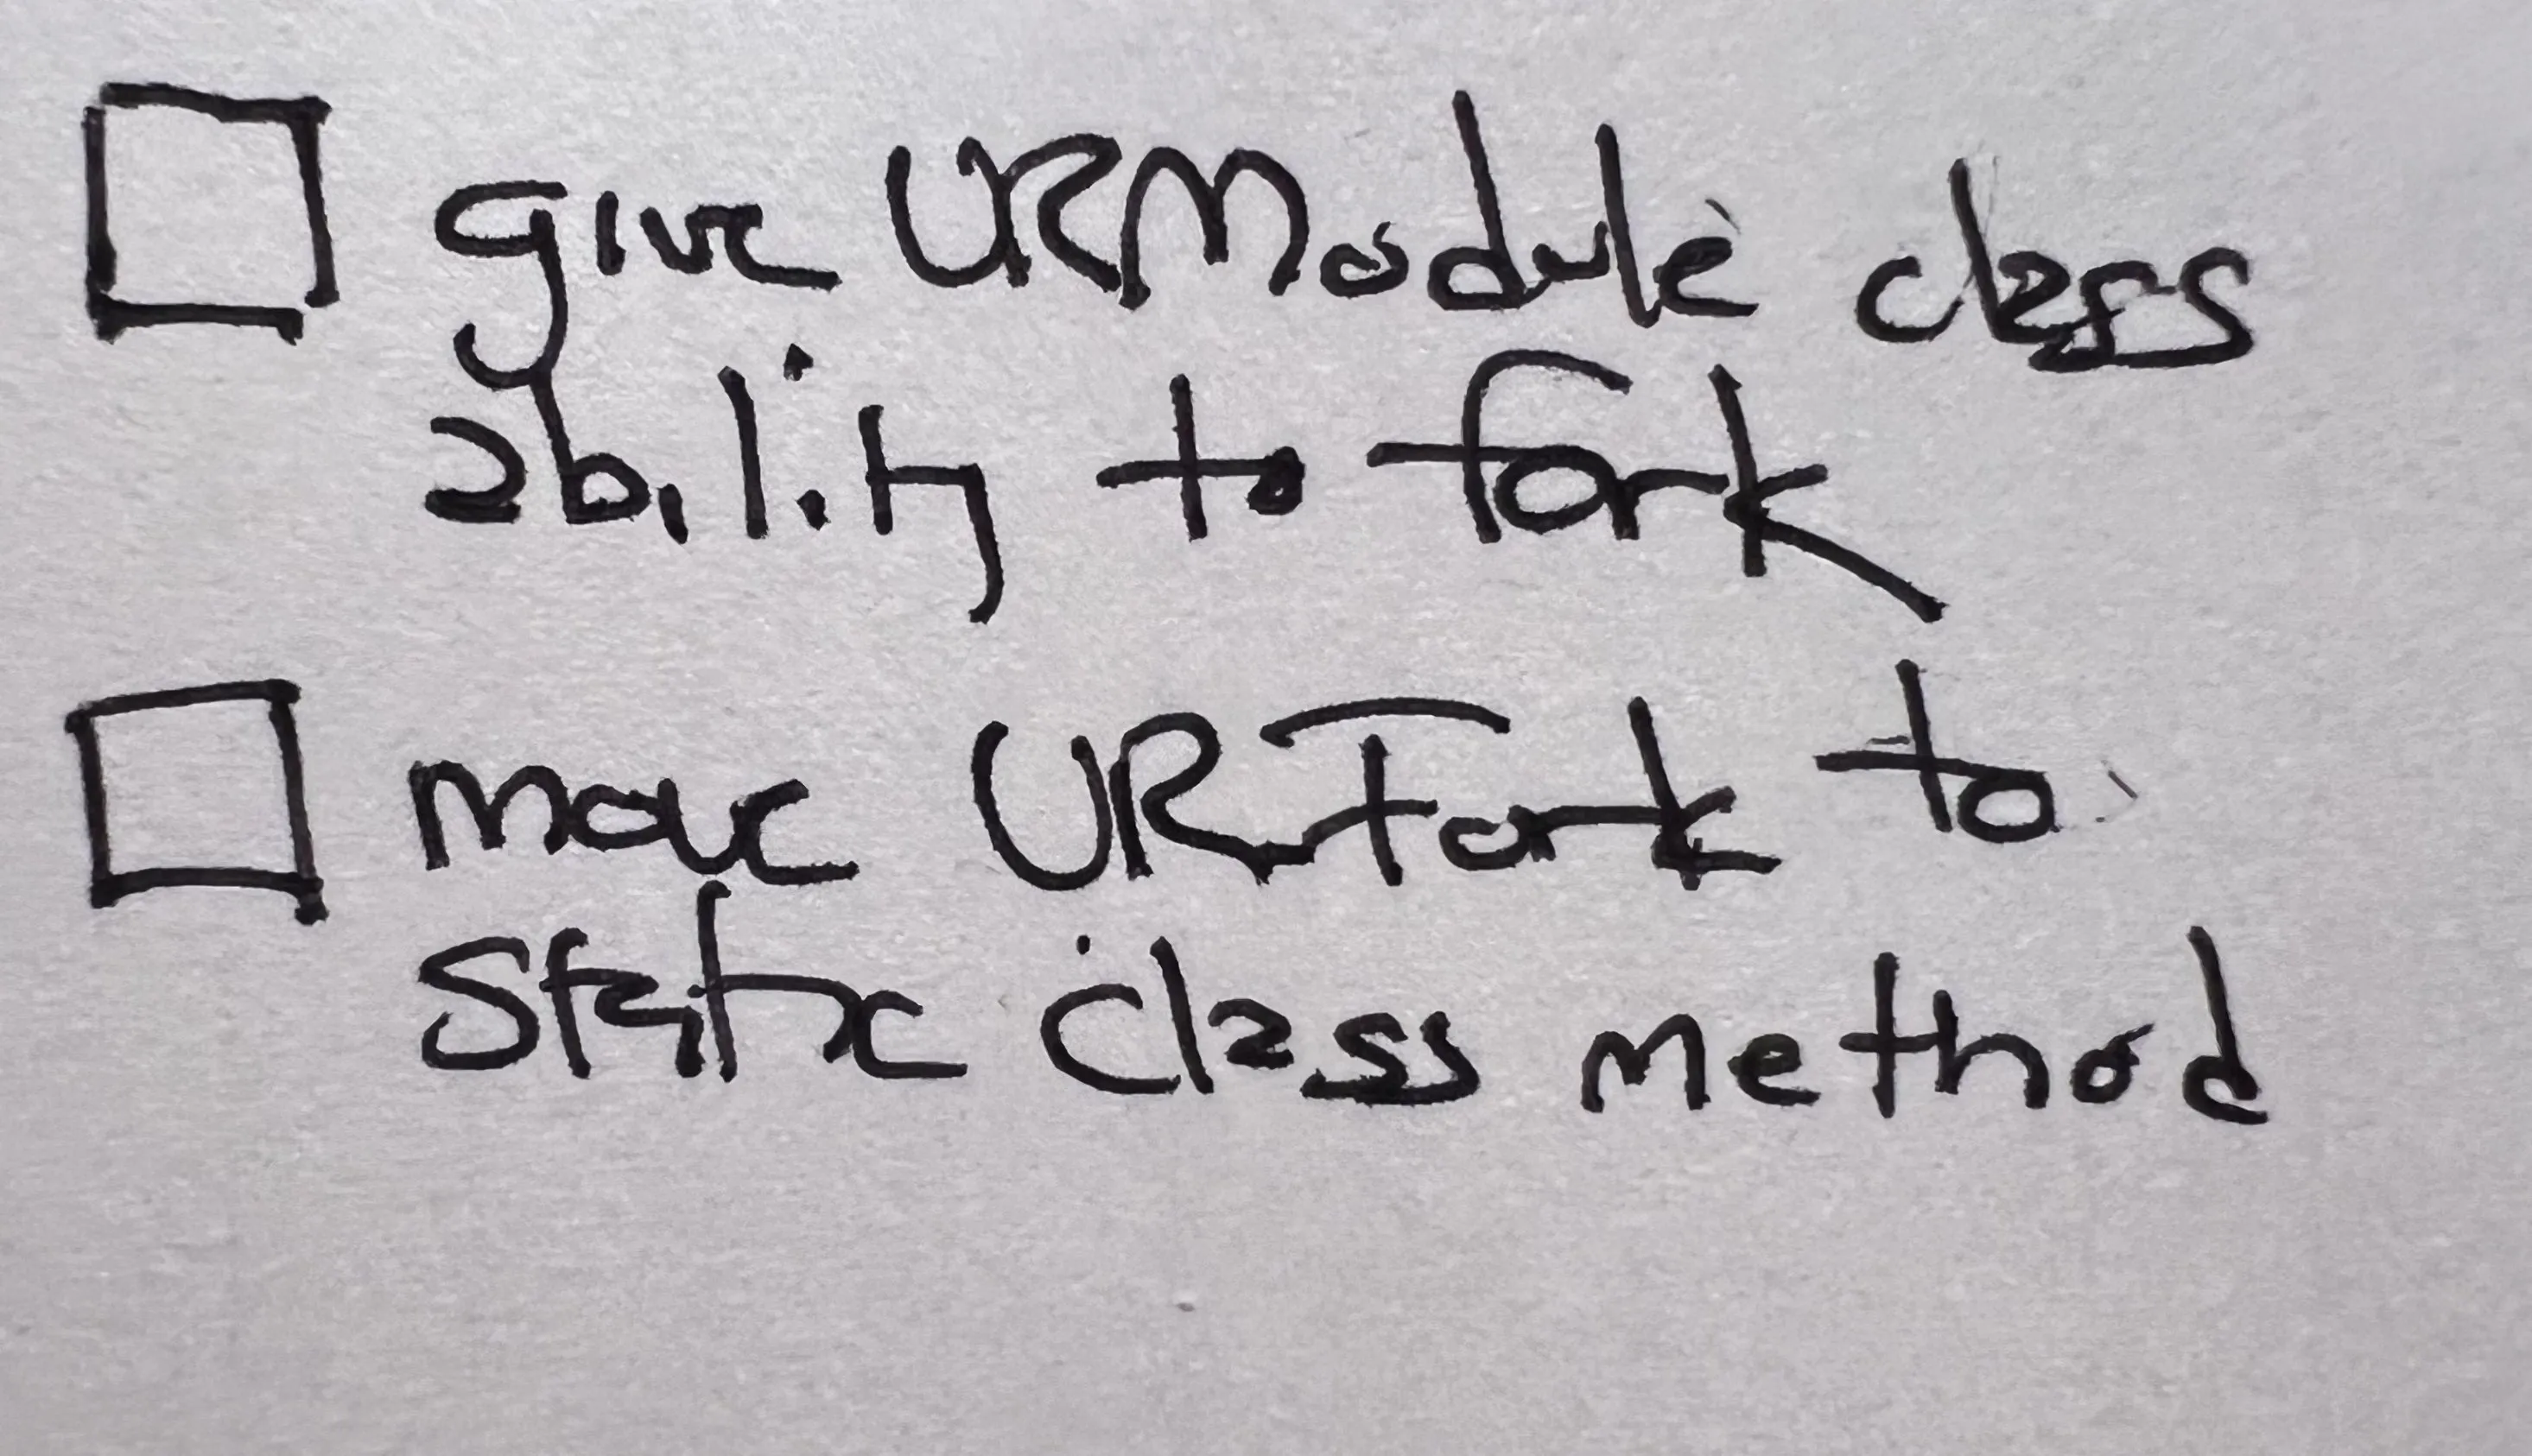 □ give URModule class
ability to fork
□ move URFork to
static class method